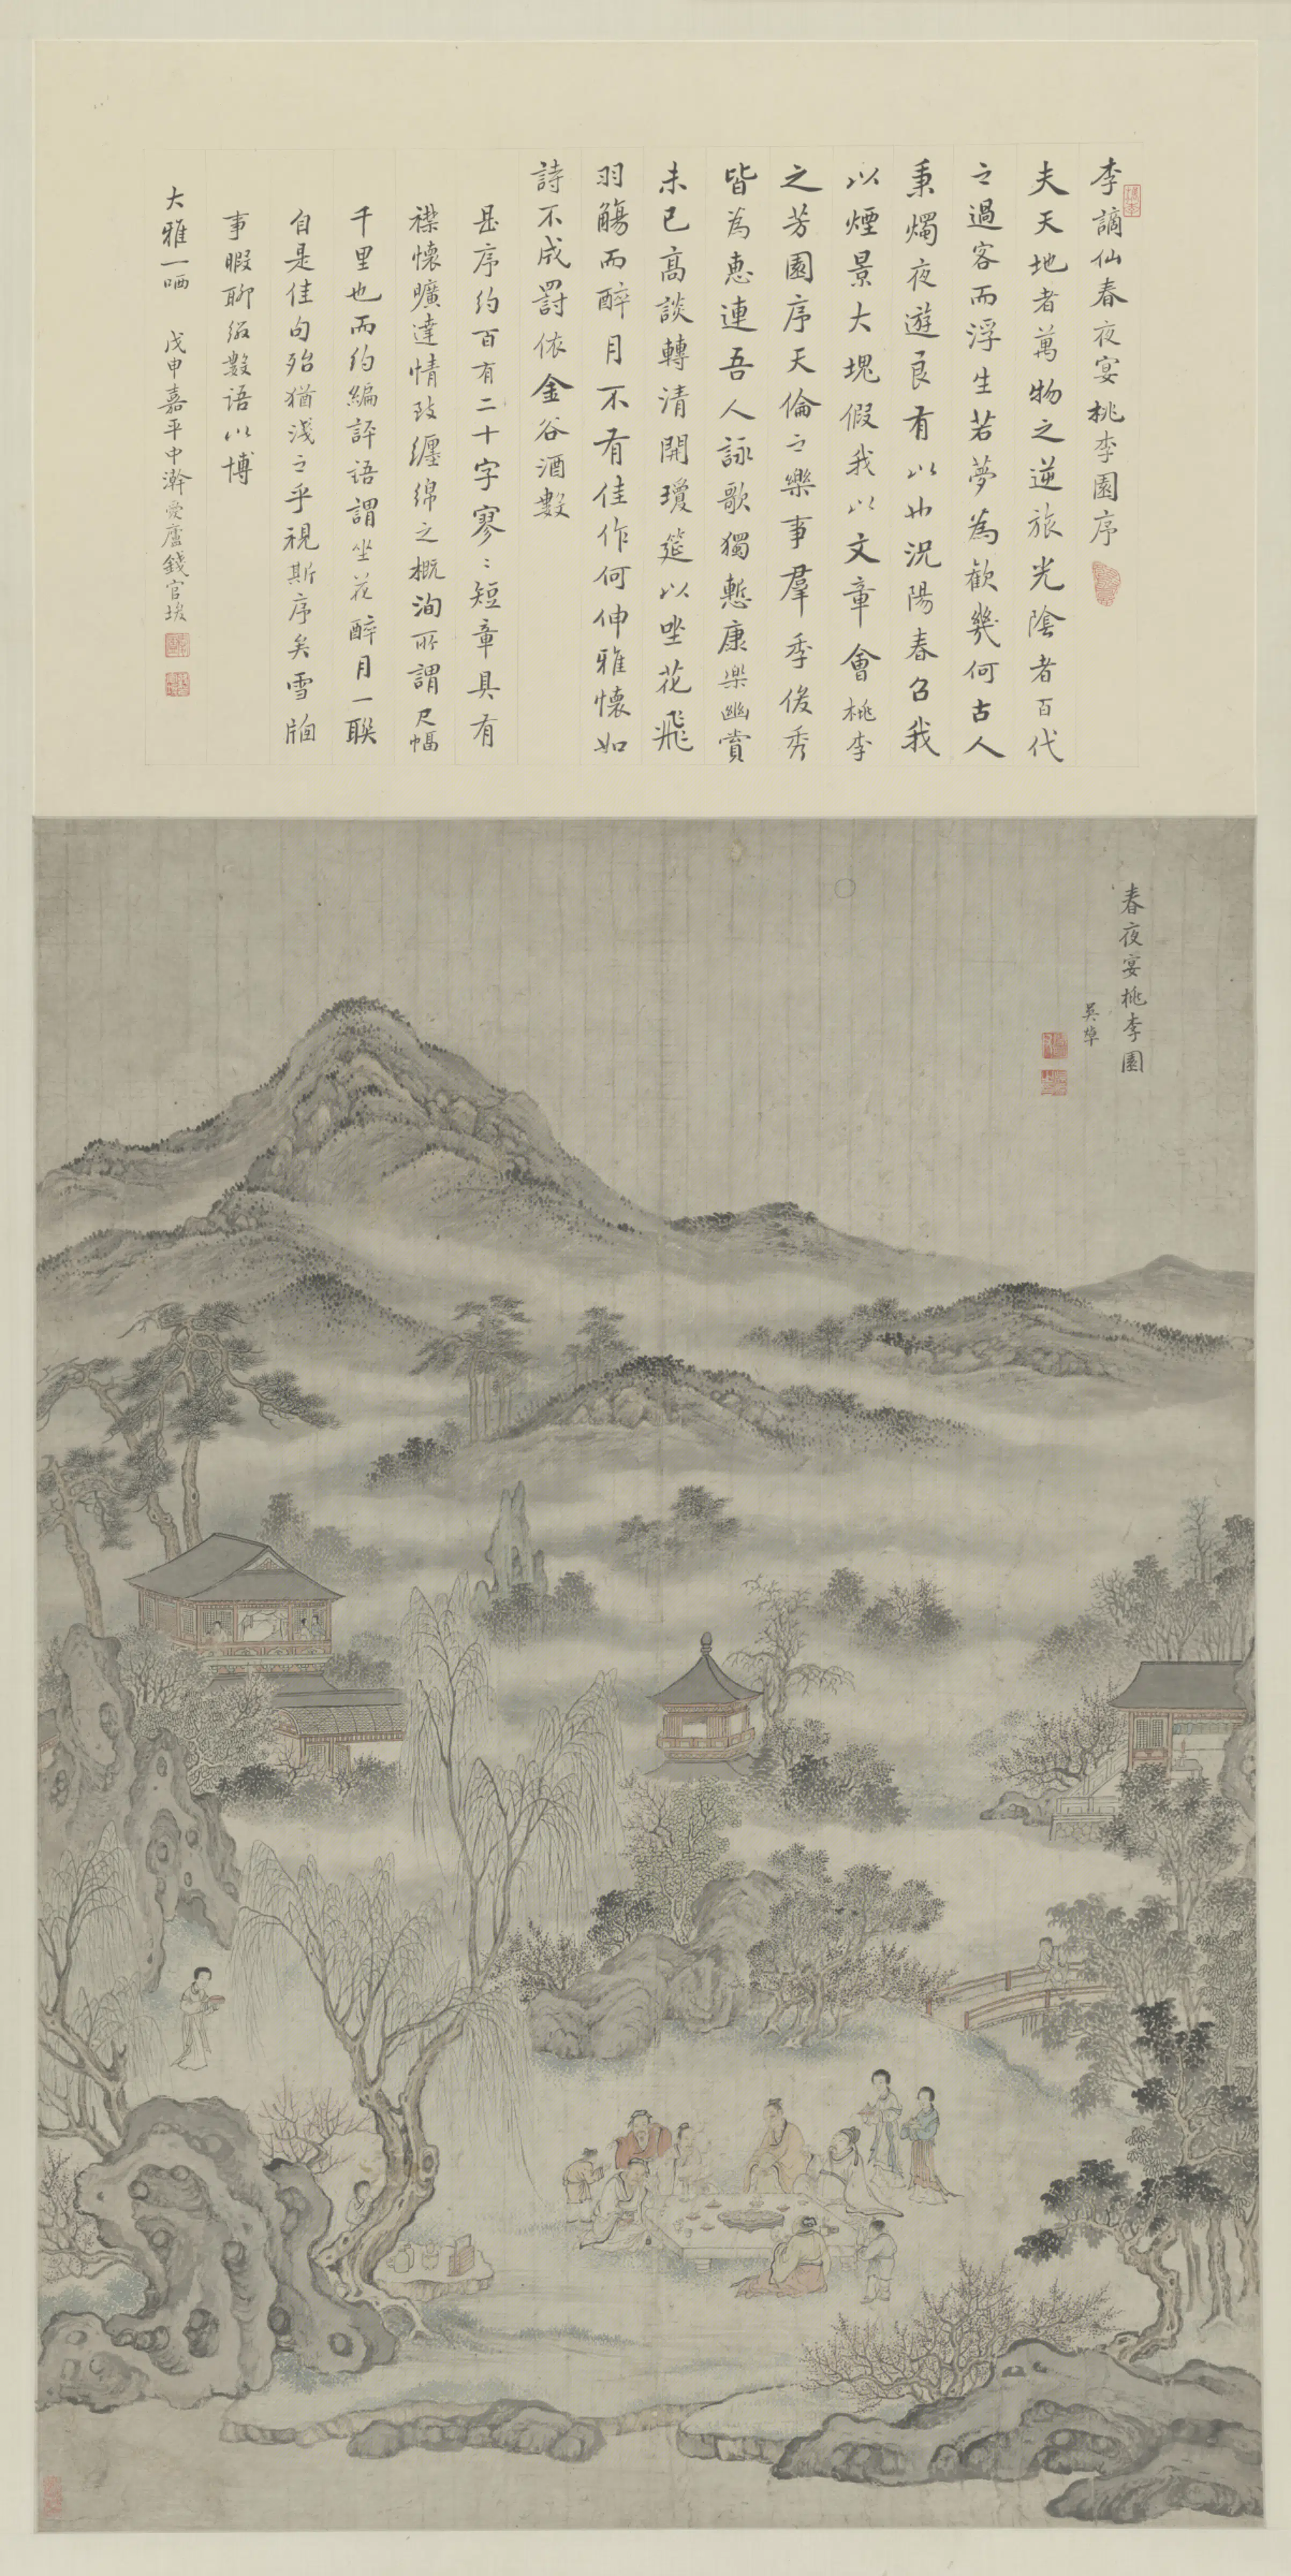 李謫仙春夜宴桃李園序
夫天地者萬物之逆旅光陰者百代
之過客而浮生若夢為歡幾何古人
秉燭夜遊良有以也況陽春召我
以煙景大塊假我以文章會桃李
之芳園序天倫之樂事羣季俊秀
皆為惠連吾人詠歌獨慙康樂幽賞
未已高談轉清開瓊筵以坐花飛
羽觴而醉月不有佳作何伸雅懷如
詩不成罰依金谷酒數
是序約百有二十字寥〻短章具有
襟懷曠達情致纏綿之概洵所謂尺幅
千里也而約編評語謂坐花醉月一聯
自是佳句殆猶淺之乎視斯序矣雪牕
事暇聊綴數語以博
大雅一哂 戊申嘉平中澣愛廬錢官埈
春夜宴桃李園
吳焯